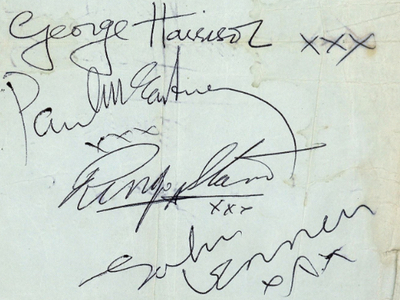 George Harrison xxx
Paul McCartney
xxx
Ringo Starr
xxx
John Lennon
xxx